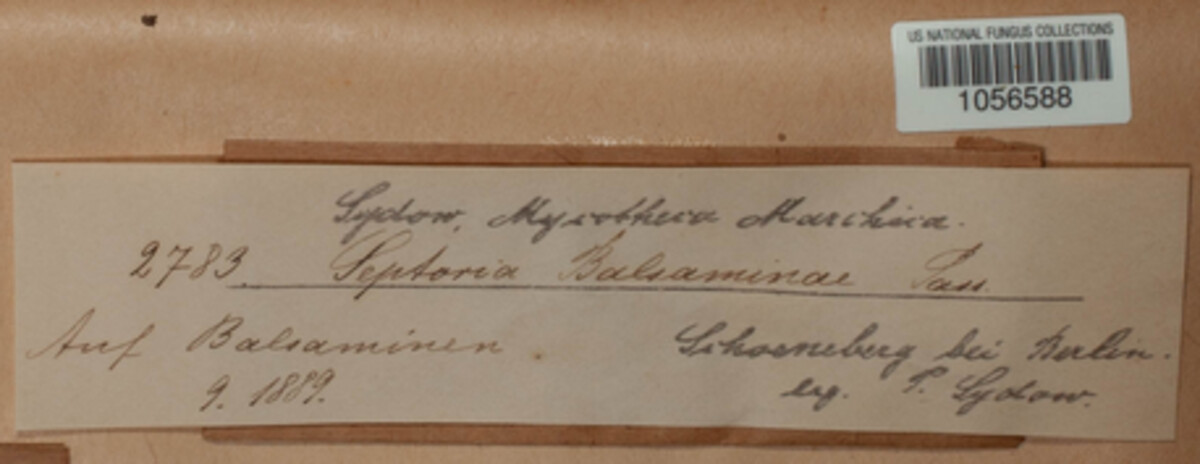 US NATIONAL FUNGUS COLLECTIONS
1056588
Sydow, Mycotheca Marchica.
2783. Septoria Balsaminae Pass.
Auf Balsaminen
9. 1889.
Schoeneberg bei Berlin.
leg. P. Sydow.